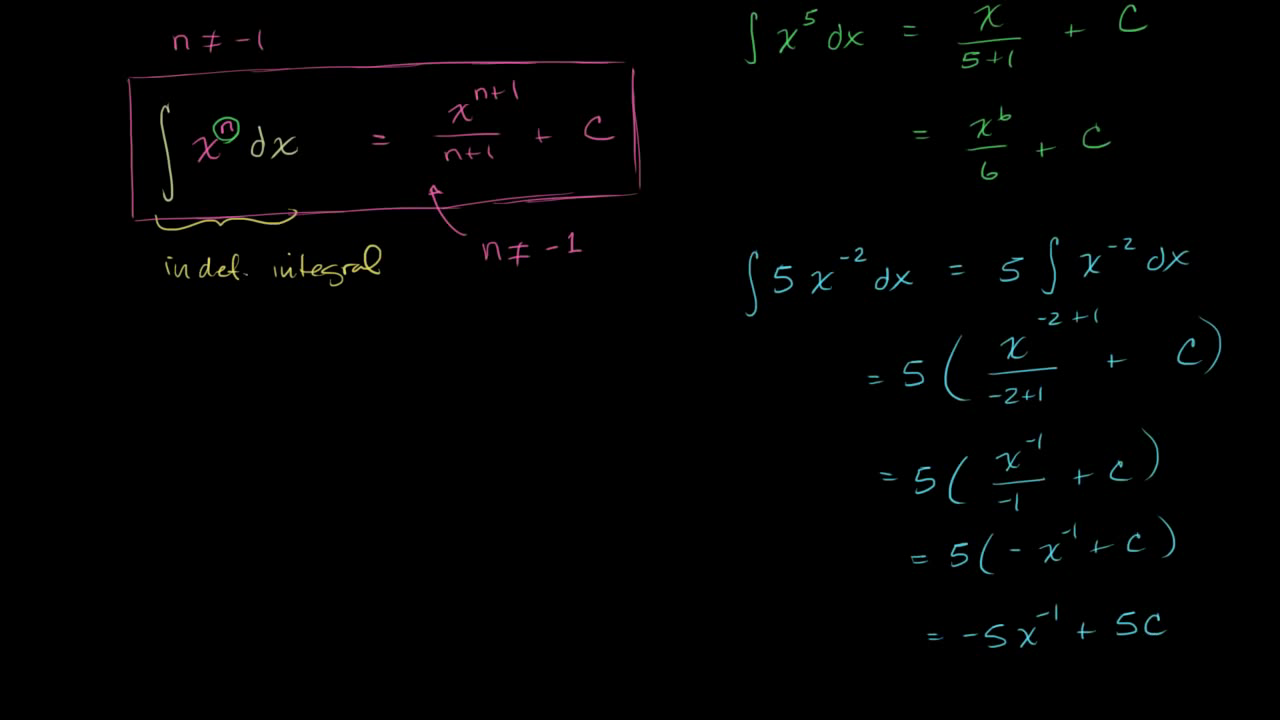 n ≠ -1
∫ xⁿ dx = xⁿ⁺¹/n+1 + C
n ≠ -1
indef. integral
∫ x⁵ dx = x/5+1 + C
= x⁶/6 + C
∫ 5 x⁻² dx = 5 ∫ x⁻² dx
= 5 ( x⁻²⁺¹/-2+1 + C )
= 5 ( x⁻¹/-1 + C )
= 5 ( - x⁻¹ + C )
= -5x⁻¹ + 5C